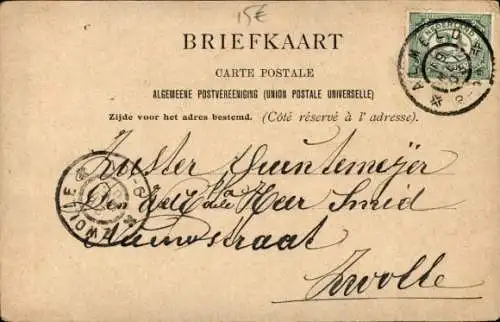 15€
NEDERLAND
AMELD
BRIEFKAART
CARTE POSTALE
ALGEMEENE POSTVEREENIGING (UNION POSTALE UNIVERSELLE)
Zijde voor het adres bestemd. (Côté réservé à l'adresse).
Zuster Quintemeijer
den Heer Smid
Nieuwstraat
Zwolle
ZWOLLE